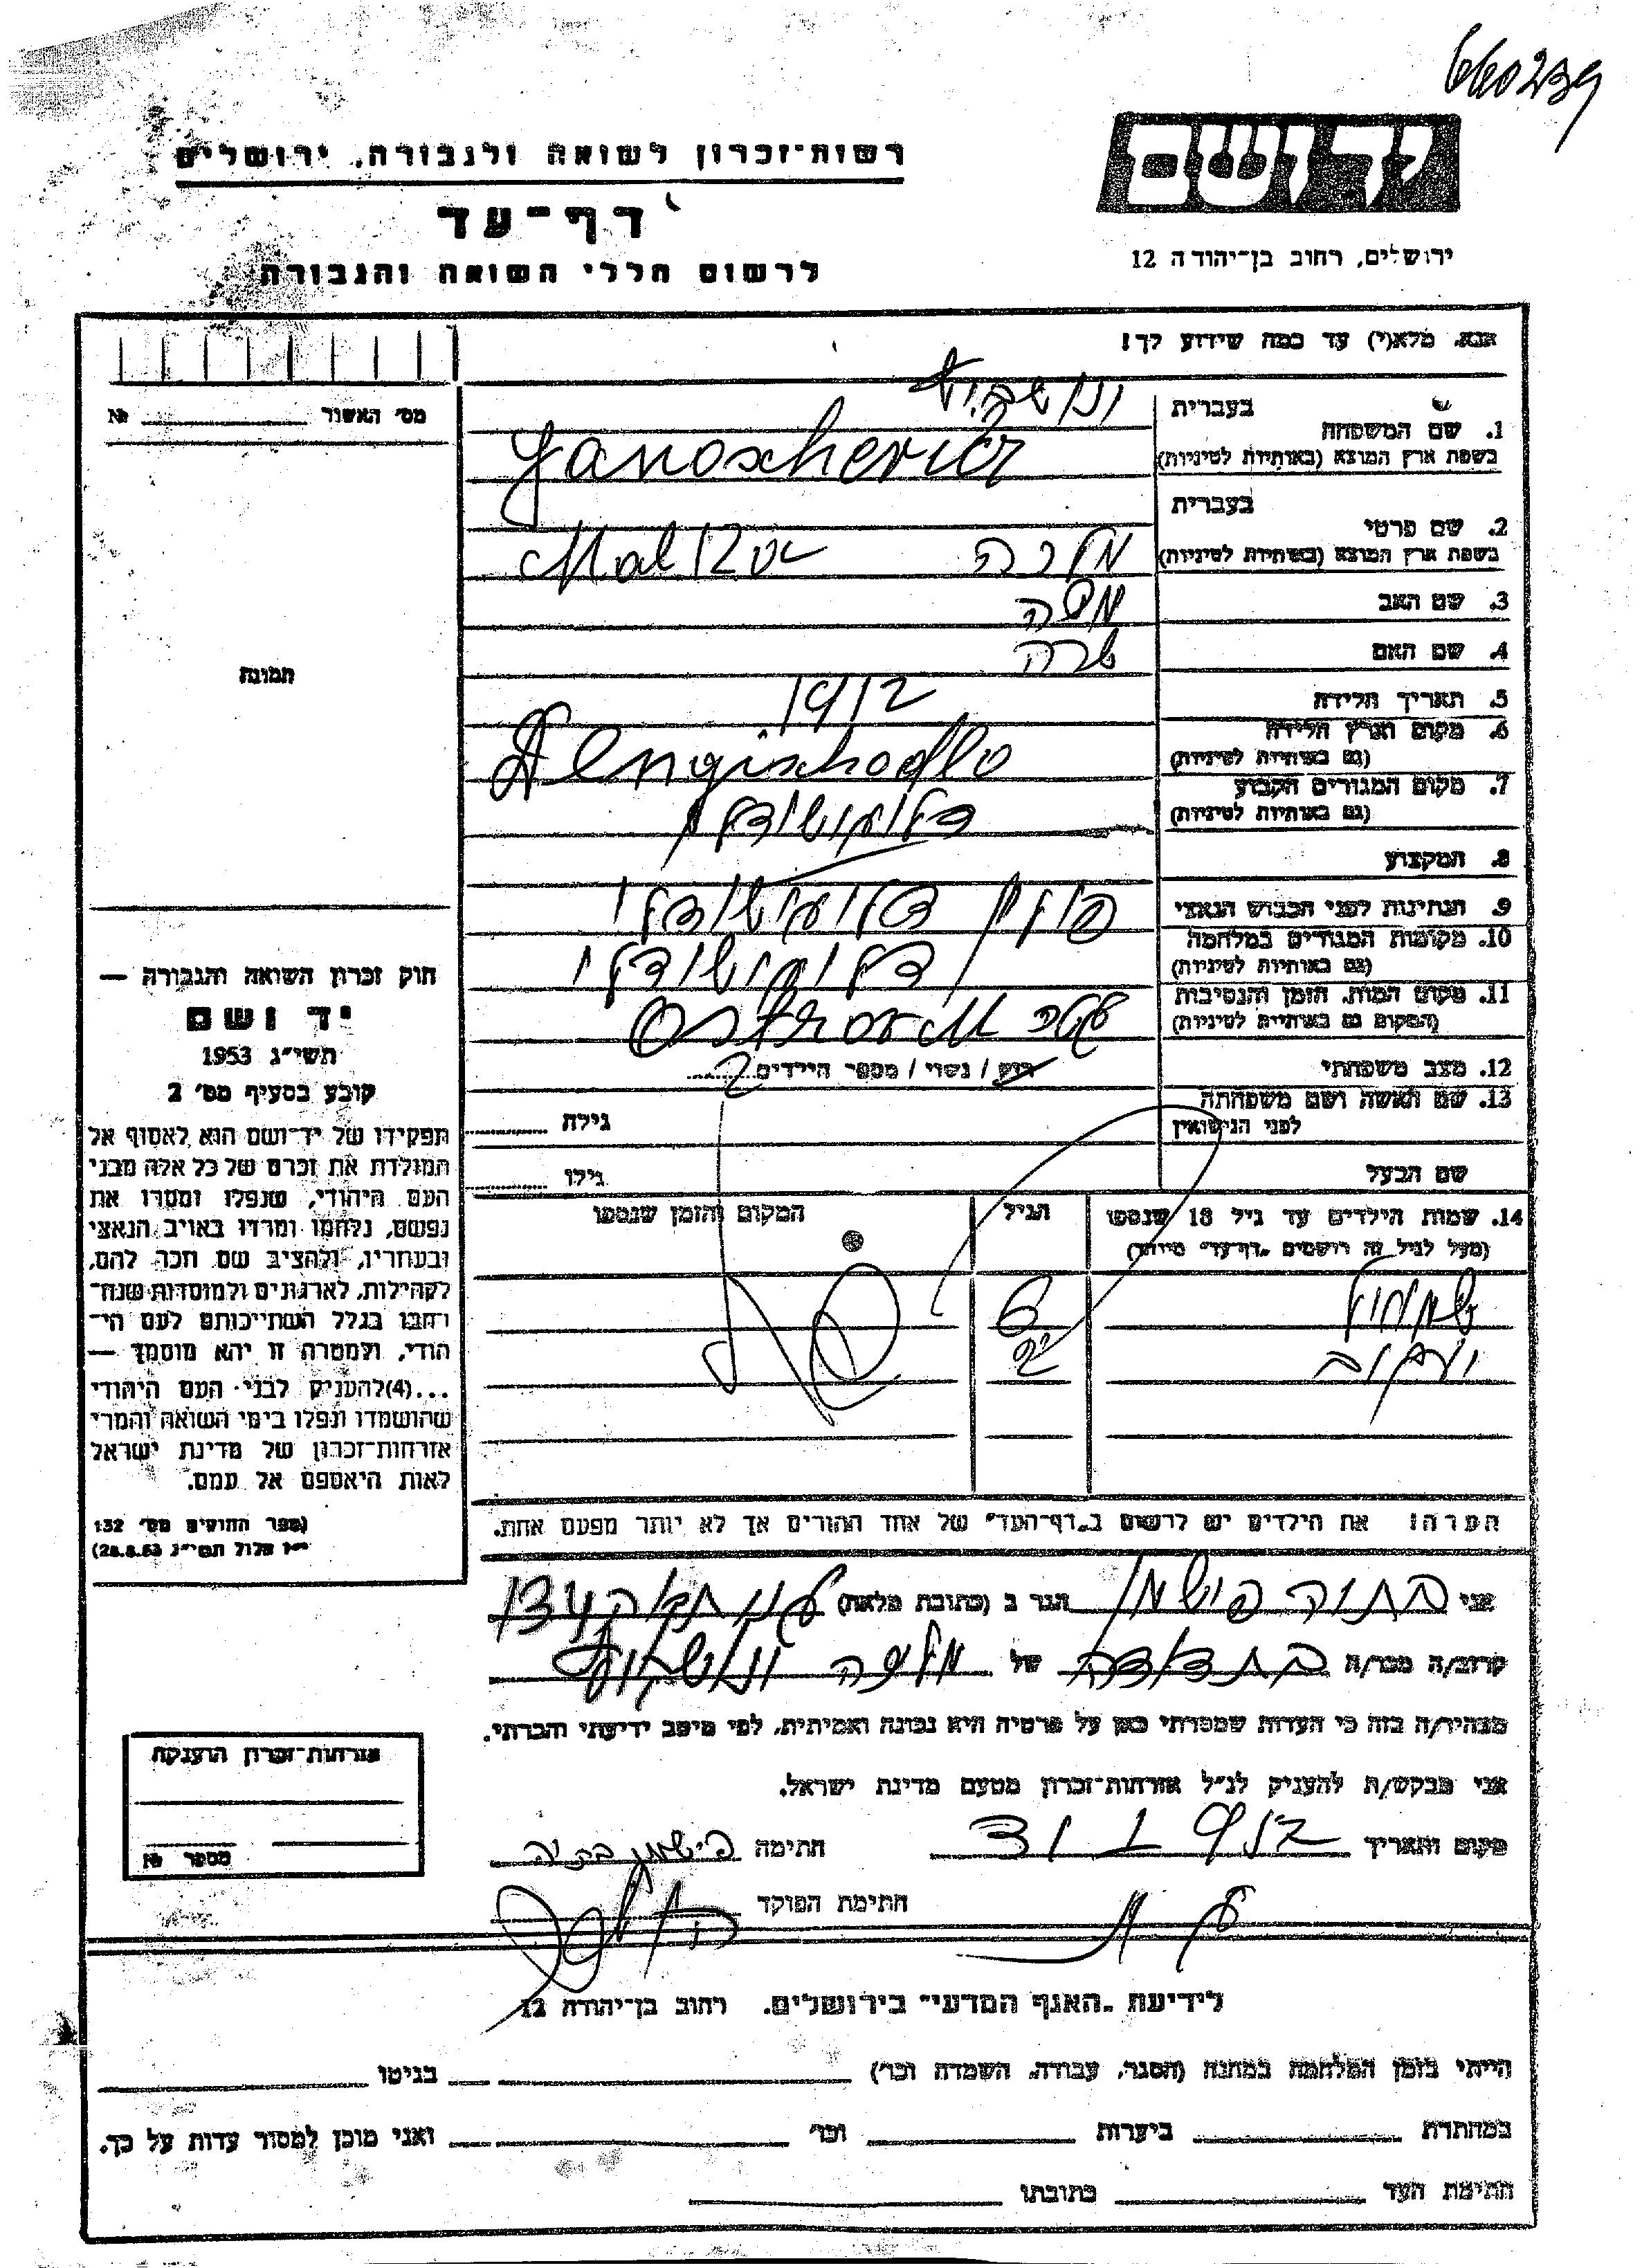 660239
רשות־זכרון לשואה ולגבורה, ירושלים
דף־עד
לרשום חללי השואה והגבורה
ידושם
ירושלים, רחוב בן־יהודה 12
אנא, מלא(י) עד כמה שידוע לך!
מס׳ האשור № 
בעברית
1. שם המשפחה
בשפת ארץ המוצא (באותיות לטיניות)
Yanoschevicz
בעברית
2. שם פרטי
בשפת ארץ המוצא (באותיות לטיניות)
מלכה
3. שם האב משה
4. שם האם שרה
תמונה
5. תאריך הלידה 1912
6. מקום וארץ הלידה
(גם באותיות לטיניות)
7. מקום המגורים הקבוע
(גם באותיות לטיניות)
8. המקצוע
9. הנתינות לפני הכבוש הנאצי פולין
10. מקומות המגורים במלחמה
(גם באותיות לטיניות)
11. מקום המות, הזמן והנסיבות
(המקום גם באותיות לטיניות)
12. מצב משפחתי
רווק / נשוי / מספר הילדים 2
13. שם האשה ושם משפחתה
לפני הנישואין
גילה
שם הבעל
גילו
14. שמות הילדים עד גיל 18 שנספו
(מעל לגיל זה רושמים „דף־עד״ מיוחד)
הגיל
המקום והזמן שנספו
שמואל 6
יעקב 2
חוק זכרון השואה והגבורה —
יד ושם
תשי״ג 1953
קובע בסעיף מס׳ 2
תפקידו של יד־ושם הוא לאסוף אל
המולדת את זכרם של כל אלה מבני
העם היהודי, שנפלו ומסרו את
נפשם, נלחמו ומרדו באויב הנאצי
ובעוזריו, ולהציב שם וזכר להם,
לקהילות, לארגונים ולמוסדות שנח־
רבו בגלל השתייכותם לעם הי־
הודי, ולמטרה זו יהא מוסמך —
...(4)להעניק לבני העם היהודי
שהושמדו ונפלו בימי השואה והמרי
אזרחות־זכרון של מדינת ישראל
לאות היאספם אל עמם.
(ספר החוקים מס׳ 132
י״ז אלול תשי״ג 28.8.53)
הערה! את הילדים יש לרשום ב„דף־העד״ של אחד ההורים אך לא יותר מפעם אחת.
אני הגר ב (כתובת מלאה)
קרוב/ה מכר/ה בת דודה של מלכה
מצהיר/ה בזה כי העדות שמסרתי כאן על פרטיה היא נכונה ואמיתית, לפי מיטב ידיעתי והכרתי.
אני מבקש/ת להעניק לנ״ל אזרחות־זכרון מטעם מדינת ישראל.
מקום ותאריך חתימה
חתימת הפוקד
אזרחות־זכרון הוענקה
מספר №
לידיעת „האגף המדעי״ בירושלים, רחוב בן־יהודה 12
הייתי בזמן המלחמה במחנה (הסגר, עבודה, השמדה וכו׳) בגיטו
במחתרת ביערות וכו׳ ואני מוכן למסור עדות על כך.
חתימת העד כתובתו